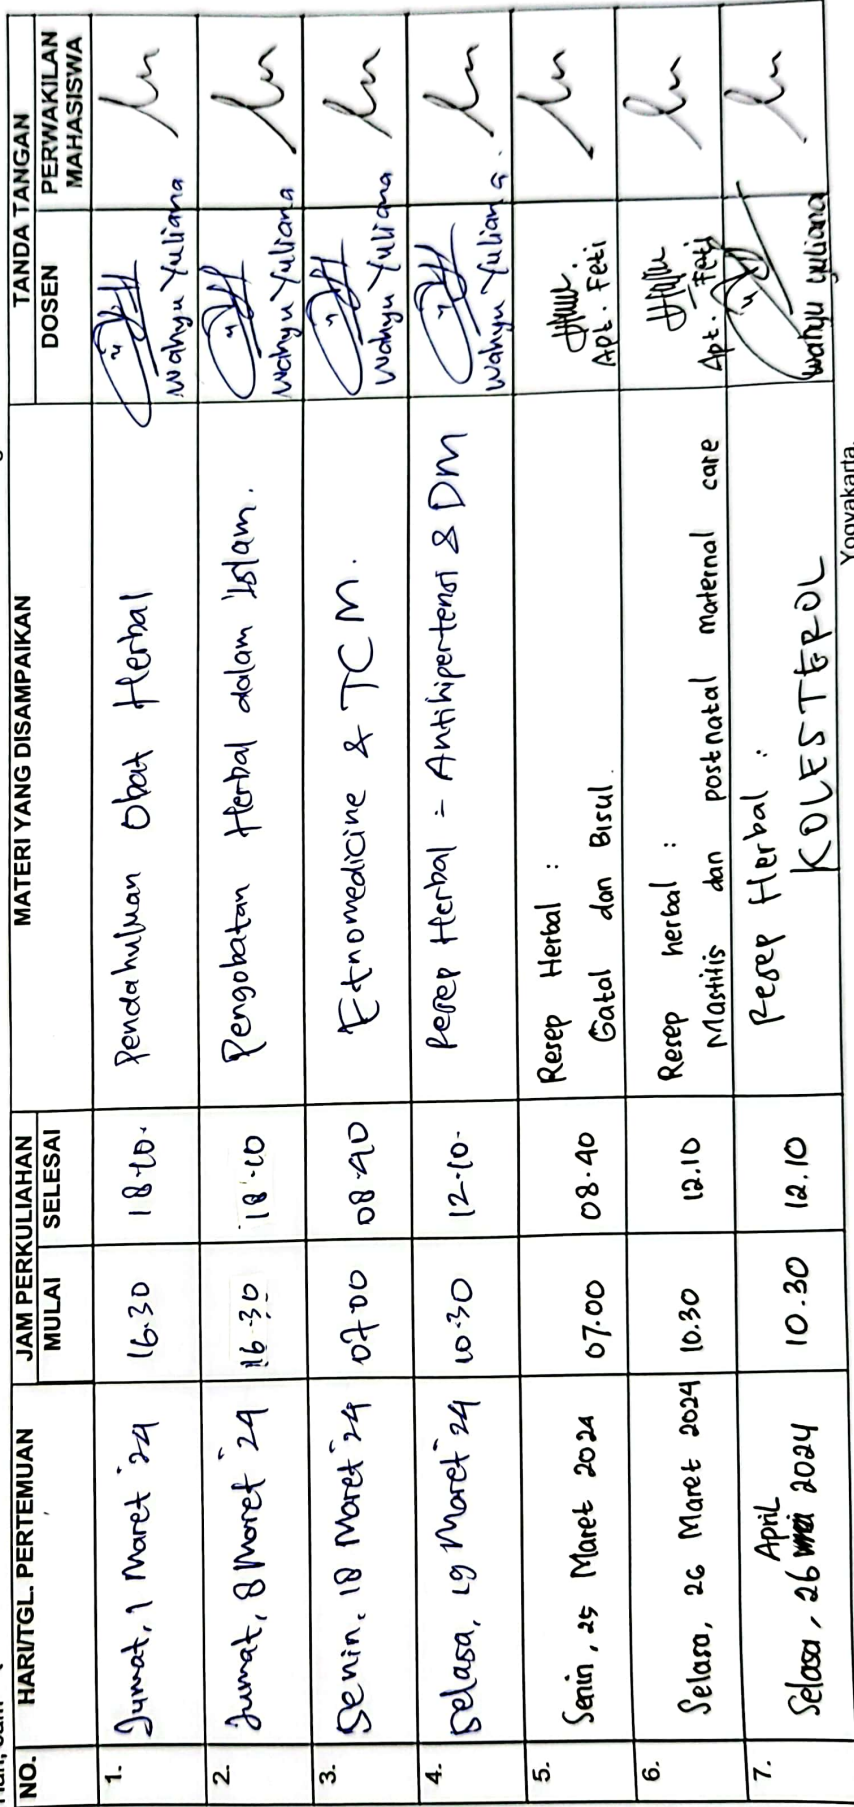 NO.
HARI/TGL. PERTEMUAN
JAM PERKULIAHAN
MULAI
SELESAI
MATERI YANG DISAMPAIKAN
TANDA TANGAN
DOSEN
PERWAKILAN
MAHASISWA
1.
Jumat, 1 Maret '24
16.30
18.10.
Pendahuluan Obat Herbal
Wahyu Yuliana
2.
Jumat, 8 Maret '24
16.30
18.10
Pengobatan Herbal dalam Islam.
Wahyu Yuliana
3.
Senin, 18 Maret '24
07.00
08.40
Etnomedicine & TCM.
Wahyu Yuliana
4.
Selasa, 19 Maret '24
10.30
12.10.
Resep Herbal = Antihipertensi & DM
Wahyu Yuliana
5.
Senin, 25 Maret 2024
07.00
08.40
Resep Herbal :
Gatal dan Bisul.
Apt. Feti
6.
Selasa, 26 Maret 2024
10.30
12.10
Resep herbal :
Mastitis dan postnatal maternal care
Apt. Feti
7.
April
Selasa, 26 2024
10.30
12.10
Resep Herbal :
KOLESTEROL
Wahyu Yuliana
Yogyakarta,